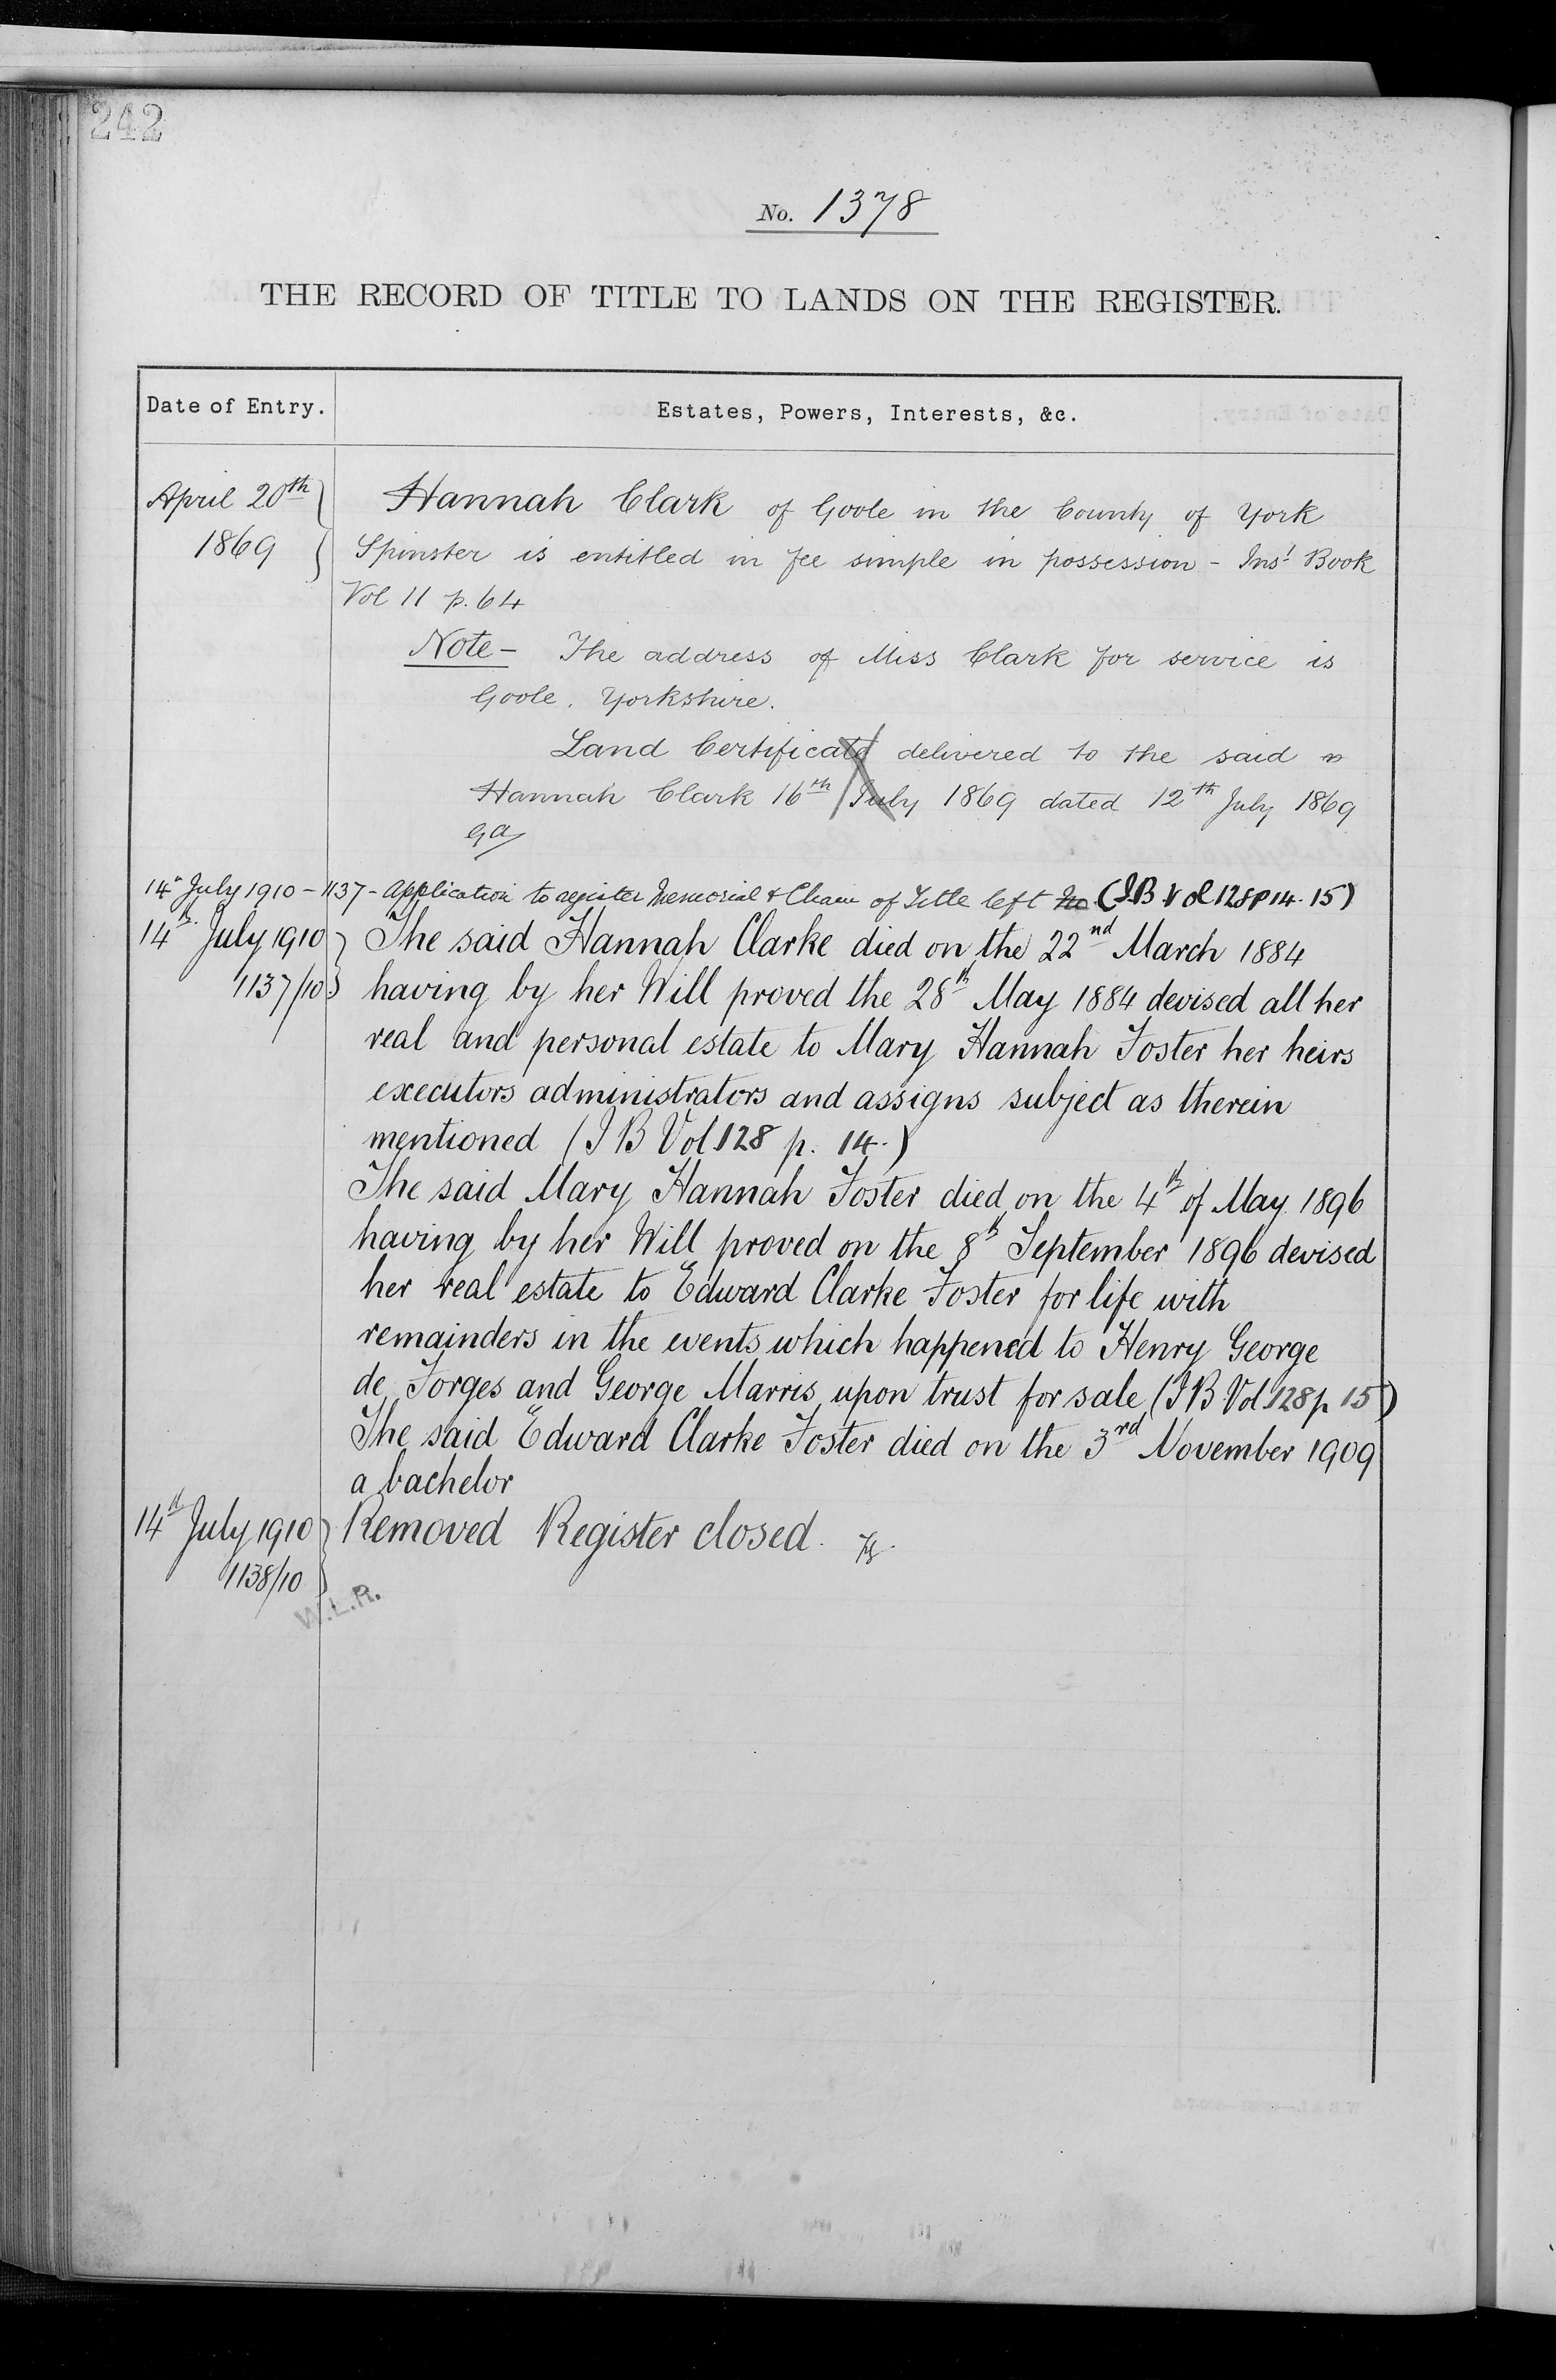 242
No. 1378
THE RECORD OF TITLE TO LANDS ON THE REGISTER.
Date of Entry.
Estates, Powers, Interests, &c.
April 20th
1869
Hannah Clark of Goole in the County of York
Spinster is entitled in fee simple in possession - Inst Book
Vol 11 p. 64
Note - The address of Miss Clark for service is
Goole. Yorkshire.
Land Certificate delivered to the said
Hannah Clark 16th July 1869 dated 12th July 1869
14th July 1910 - 1137 - Application to register Memorial & Chain of Title left (I.B Vol 128 P 14. 15)
14th July 1910
1137/10
The said Hannah Clarke died on the 22nd March 1884
having by her Will proved the 28th May 1884 devised all her
real and personal estate to Mary Hannah Foster her heirs
executors administrators and assigns subject as therein
mentioned (I B Vol 128 p. 14.)
The said Mary Hannah Foster died on the 4th of May 1896
having by her Will proved on the 8th September 1896 devised
her real estate to Edward Clarke Foster for life with
remainders in the events which happened to Henry George
de Forges and George Marris upon trust for sale (I B Vol 128 p 15)
The said Edward Clarke Foster died on the 3rd November 1909
a bachelor
14th July 1910
1138/10
Removed Register closed.
W.L.R.